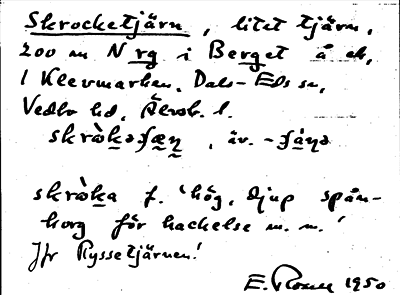 Skrocketjärn, litet tjärn,
200 m N rg i Berget å ek,
1 Klevmarken, Dals-Eds sn,
Vedbo hd, Älvsb. l.
skròkəfæn, äv. -fánə
skròka f. 'hög, djup spån-
korg för hackelse m. m.'
Jfr Ryssetjärnen!
E. Rosell 1950